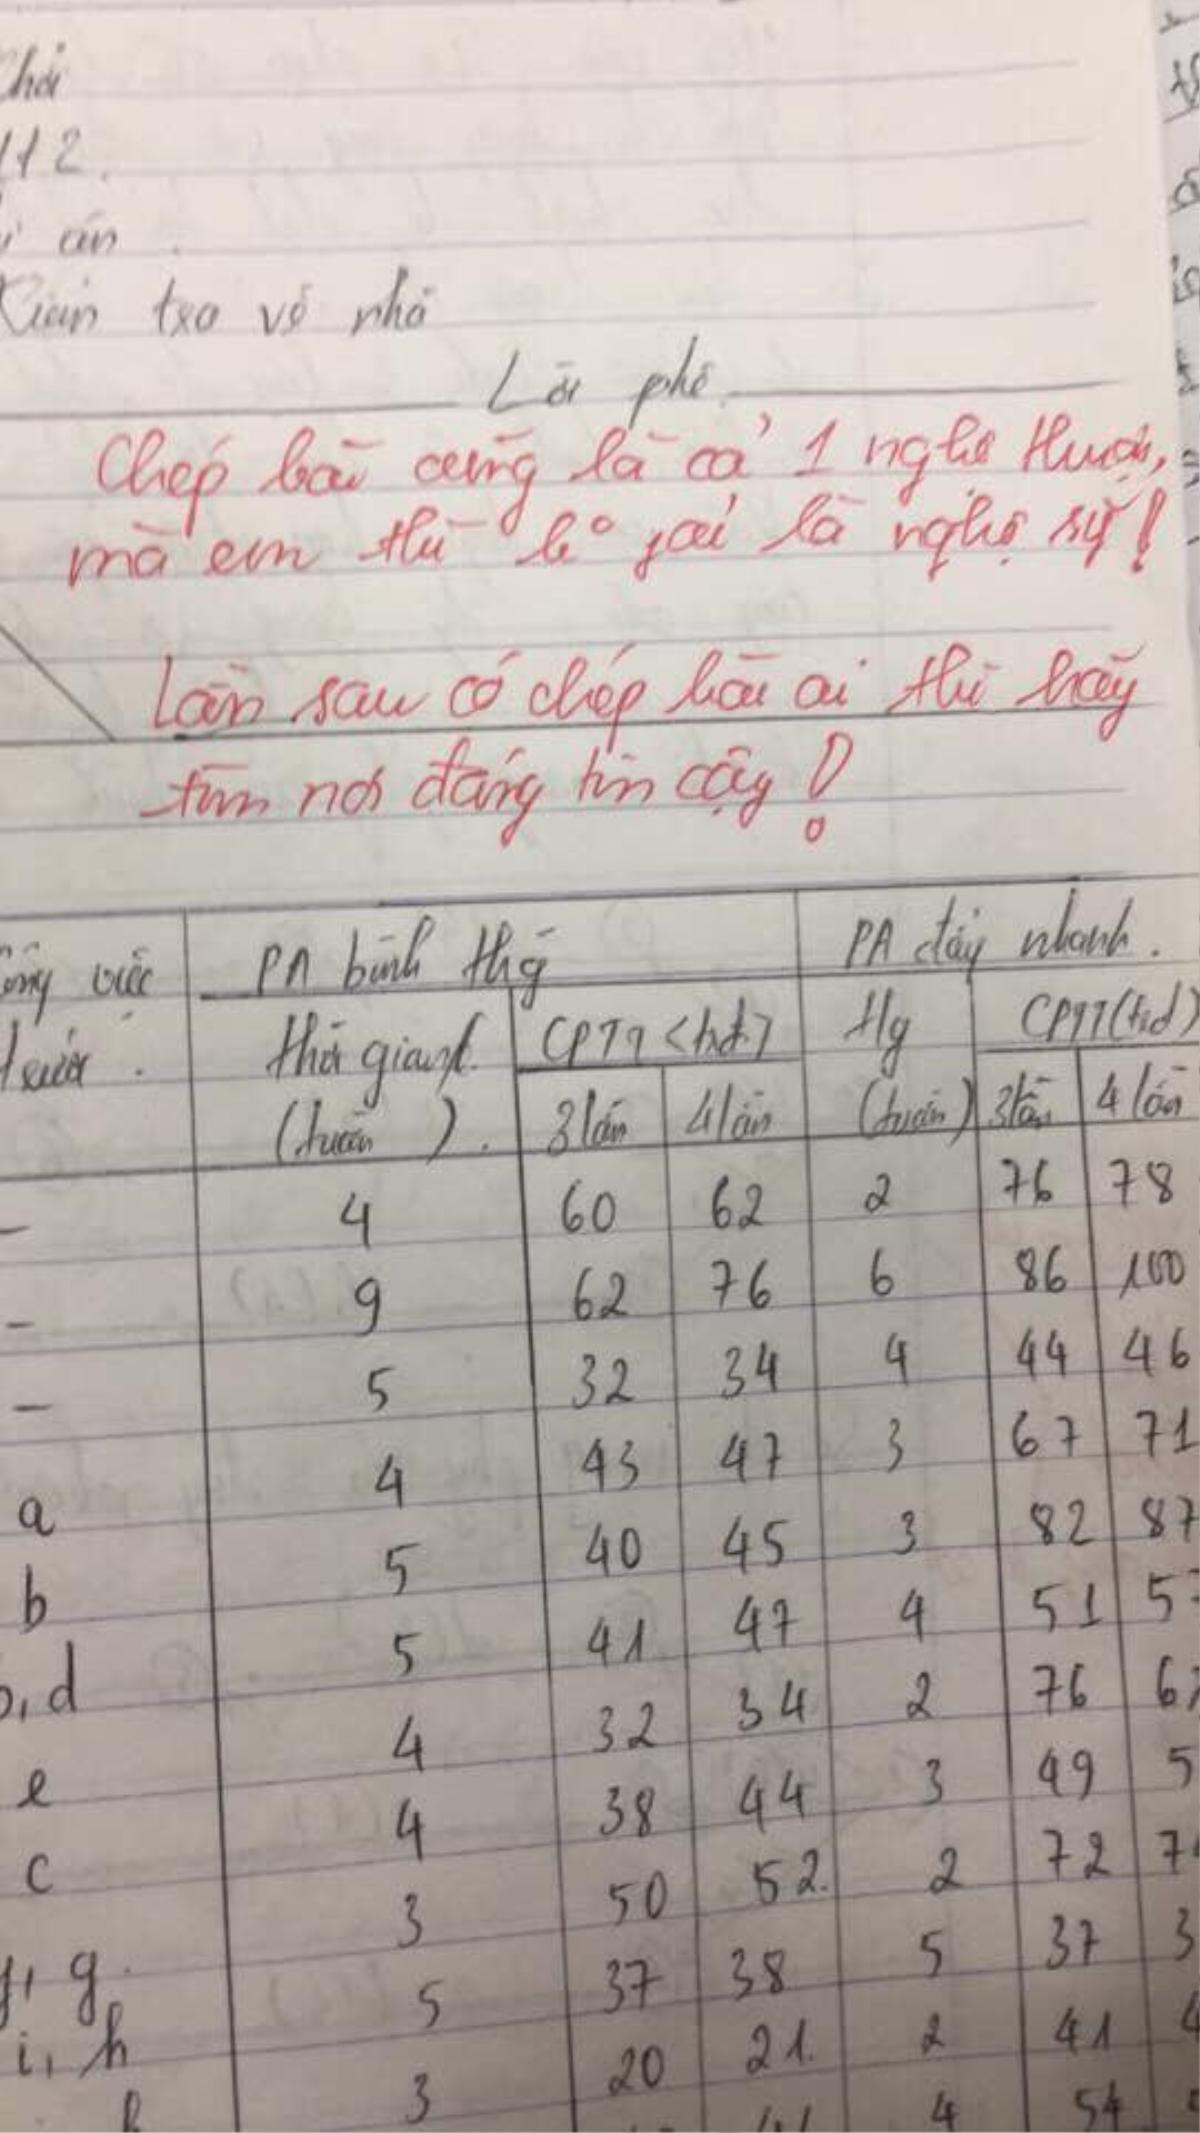 112.
án
Kiểm tra về nhà
Lời phê
Chép bài cũng là cả 1 nghệ thuật,
mà em thì ko phải là nghệ sỹ!
Lần sau có chép bài ai thì hãy
tìm nơi đáng tin cậy!
việc PA bình thg PA đẩy nhanh.
trước. Thời gian CPTT (trđ) Tlg CPTT (trđ)
(tuần). 3 lần 4 lần (tuần) 3 lần 4 lần
- 4 60 62 2 76 78
- 9 62 76 6 86 100
- 5 32 34 4 44 46
a 4 43 47 3 67 71
b 5 40 45 3 82 87
, d 5 41 47 4 51 5
e 4 32 34 2 76 6
c 4 38 44 3 49 5
, g. 3 50 52. 2 72 7
i, h 5 37 38 5 37 3
3 20 21. 2 41 4
4 54